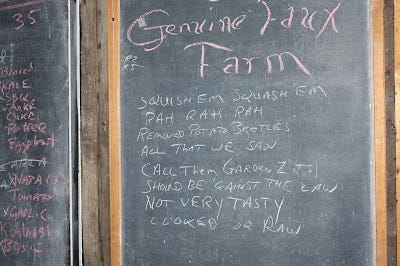 35
Broccoli
KALE
CUKE
Eggplant
TOMATO
GARLIC
Kohlrabi
BASIL
Genuine Faux
Farm
SQUISH EM SQUASH 'EM
RAH RAH RAH
REMOVED POTATO BEETLES
ALL THAT WE SAW
CALL THEM GARDEN ZITS!
SHOULD BE 'GAINST THE LAW
NOT VERY TASTY
COOKED OR RAW